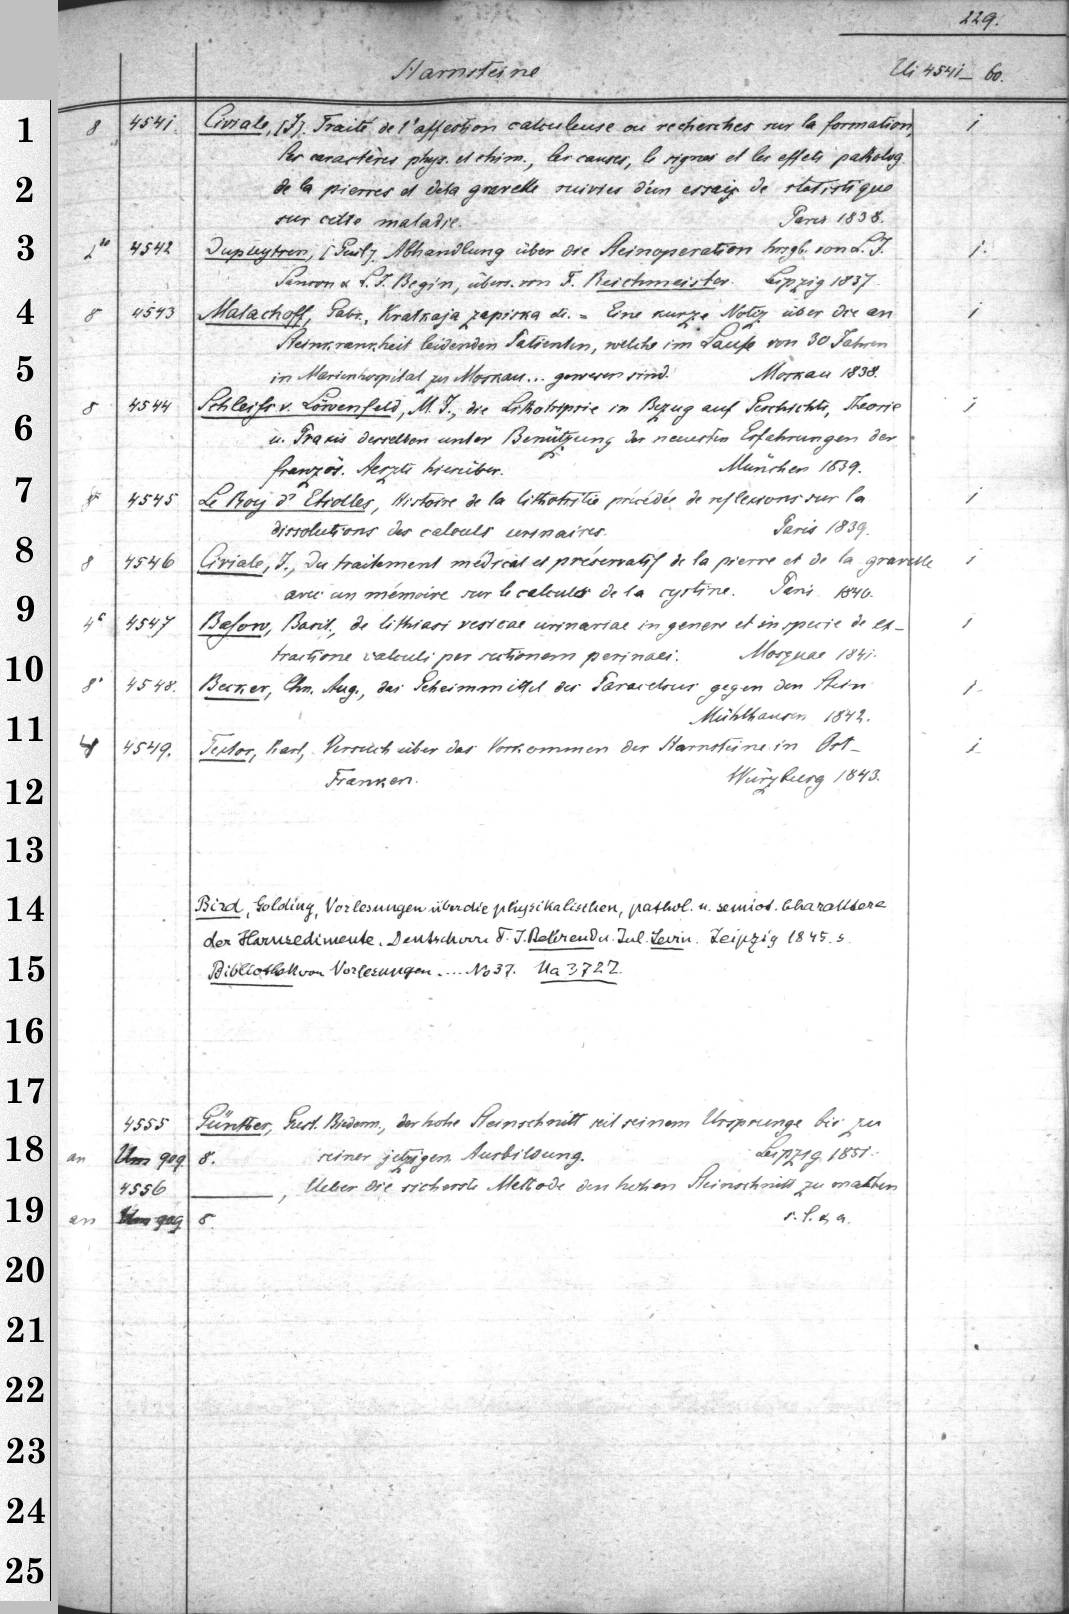 229.
Harnsteine Ui 4541 – 60.
1 8 4541. Civiale, [J]. Traité de l'affection calculeuse ou recherches sur la formation, 1
les caractères phys. et chim., les causes, le signes et les effets patholog.
2 de la pierres et dela gravelle suivies d'un essai de statistique
sur cette maladie. Paris 1838.
3 4542 Dupuytren, [Guil]. Abhandlung über die Steinoperation hrsgb. von L. J. 1.
Sanson & L. J. Begin, übers. von F. Reichmeister. Leipzig 1837.
4 8 4543 Malachoff, Gabr., Kratkaja zapiska etc. = Eine kurze Notiz über die an 1
Steinkrankheit leidenden Patienten, welche im Laufe von 30 Jahren
5 in Marienhospital zu Moskau... gewesen sind. Moskau 1838.
8 4544 Schleiss v. Löwenfeld, M. J., die Lithotripsie in Bezug auf Geschichte, Theorie 1
6 u. Praxis derselben unter Benützung der neuesten Erfahrungen der
französ. Aerzte hierüber. München 1839.
7 8 4545 Le Roy d' Etiolles, Histoire de la lithotritie précédée de reflexions sur la 1
dissolutions des calculs urinaires. Paris 1839.
8 8 4546 Civiale, J., Du traitement médical et préservatif de la pierre et de la gravelle 1
9 avec un mémoire sur le calculs de la cystine. Paris 1840.
4° 4547 Bassow, Basil., de lithiasi vesicae urinariae in genere et in specie de ex-
10 tractione calculi per sectionem perinaei. Mosquae 1841.
8° 4548. Becker, Chn. Aug., das Geheimmittel des Paracelsus gegen den Stein 1.
11 Mühlhausen 1842.
4549. Textor, Karl, Versuch über das Vorkommen der Harnsteine in Ost- 1.
12 Franken. Würzburg 1843.
13
14 Bird, Golding, Vorlesungen über die physikalischen, pathol. u. semiot. Charaktere
der Harnsedimente. Deutsch von F. J. Behrend u. Jul. Levin. Leipzig 1845. s.
15 Bibliothek von Vorlesungen..... No 37. Ua 3727.
16
17
4555 Günther, Gust. Biederm., der hohe Steinschnitt seit seinem Ursprunge bis zu
18 an 8. seiner jetzigen Ausbildung. Leipzig 1851.
4556 ———, Ueber die sicherste Methode den hohen Steinschnitt zu machen
19 an 8. s. l. & a.
20
21
22
23
24
25